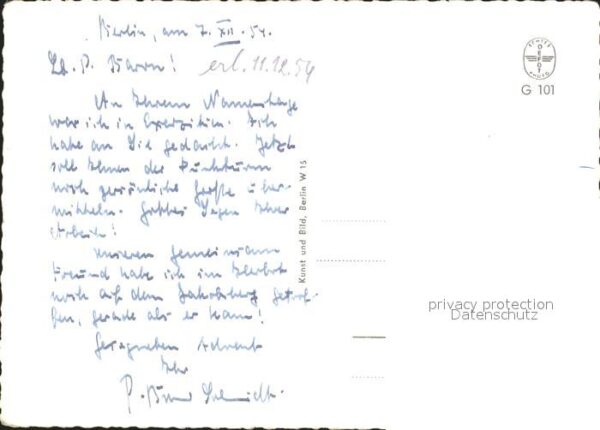 Berlin, am 7. XII. 54.
Lb. P. Baron!
erl. 11.12.54
An Ihrem Namenstage
war ich in Exerzitien. Ich
habe an Sie gedacht. Jetzt
soll Ihnen der Funkturm
noch persönliche Grüße über-
mitteln. Gottes Segen Ihrer
Arbeit!
Unseren gemeinsamen
Freund habe ich im Herbst
noch auf dem Jakobsberg getrof-
fen, gerade als er kam!
Gesegneten Advent
Ihr
P.
Kunst und Bild, Berlin W 15
ECHTES
FOTO
G 101
privacy protection
Datenschutz